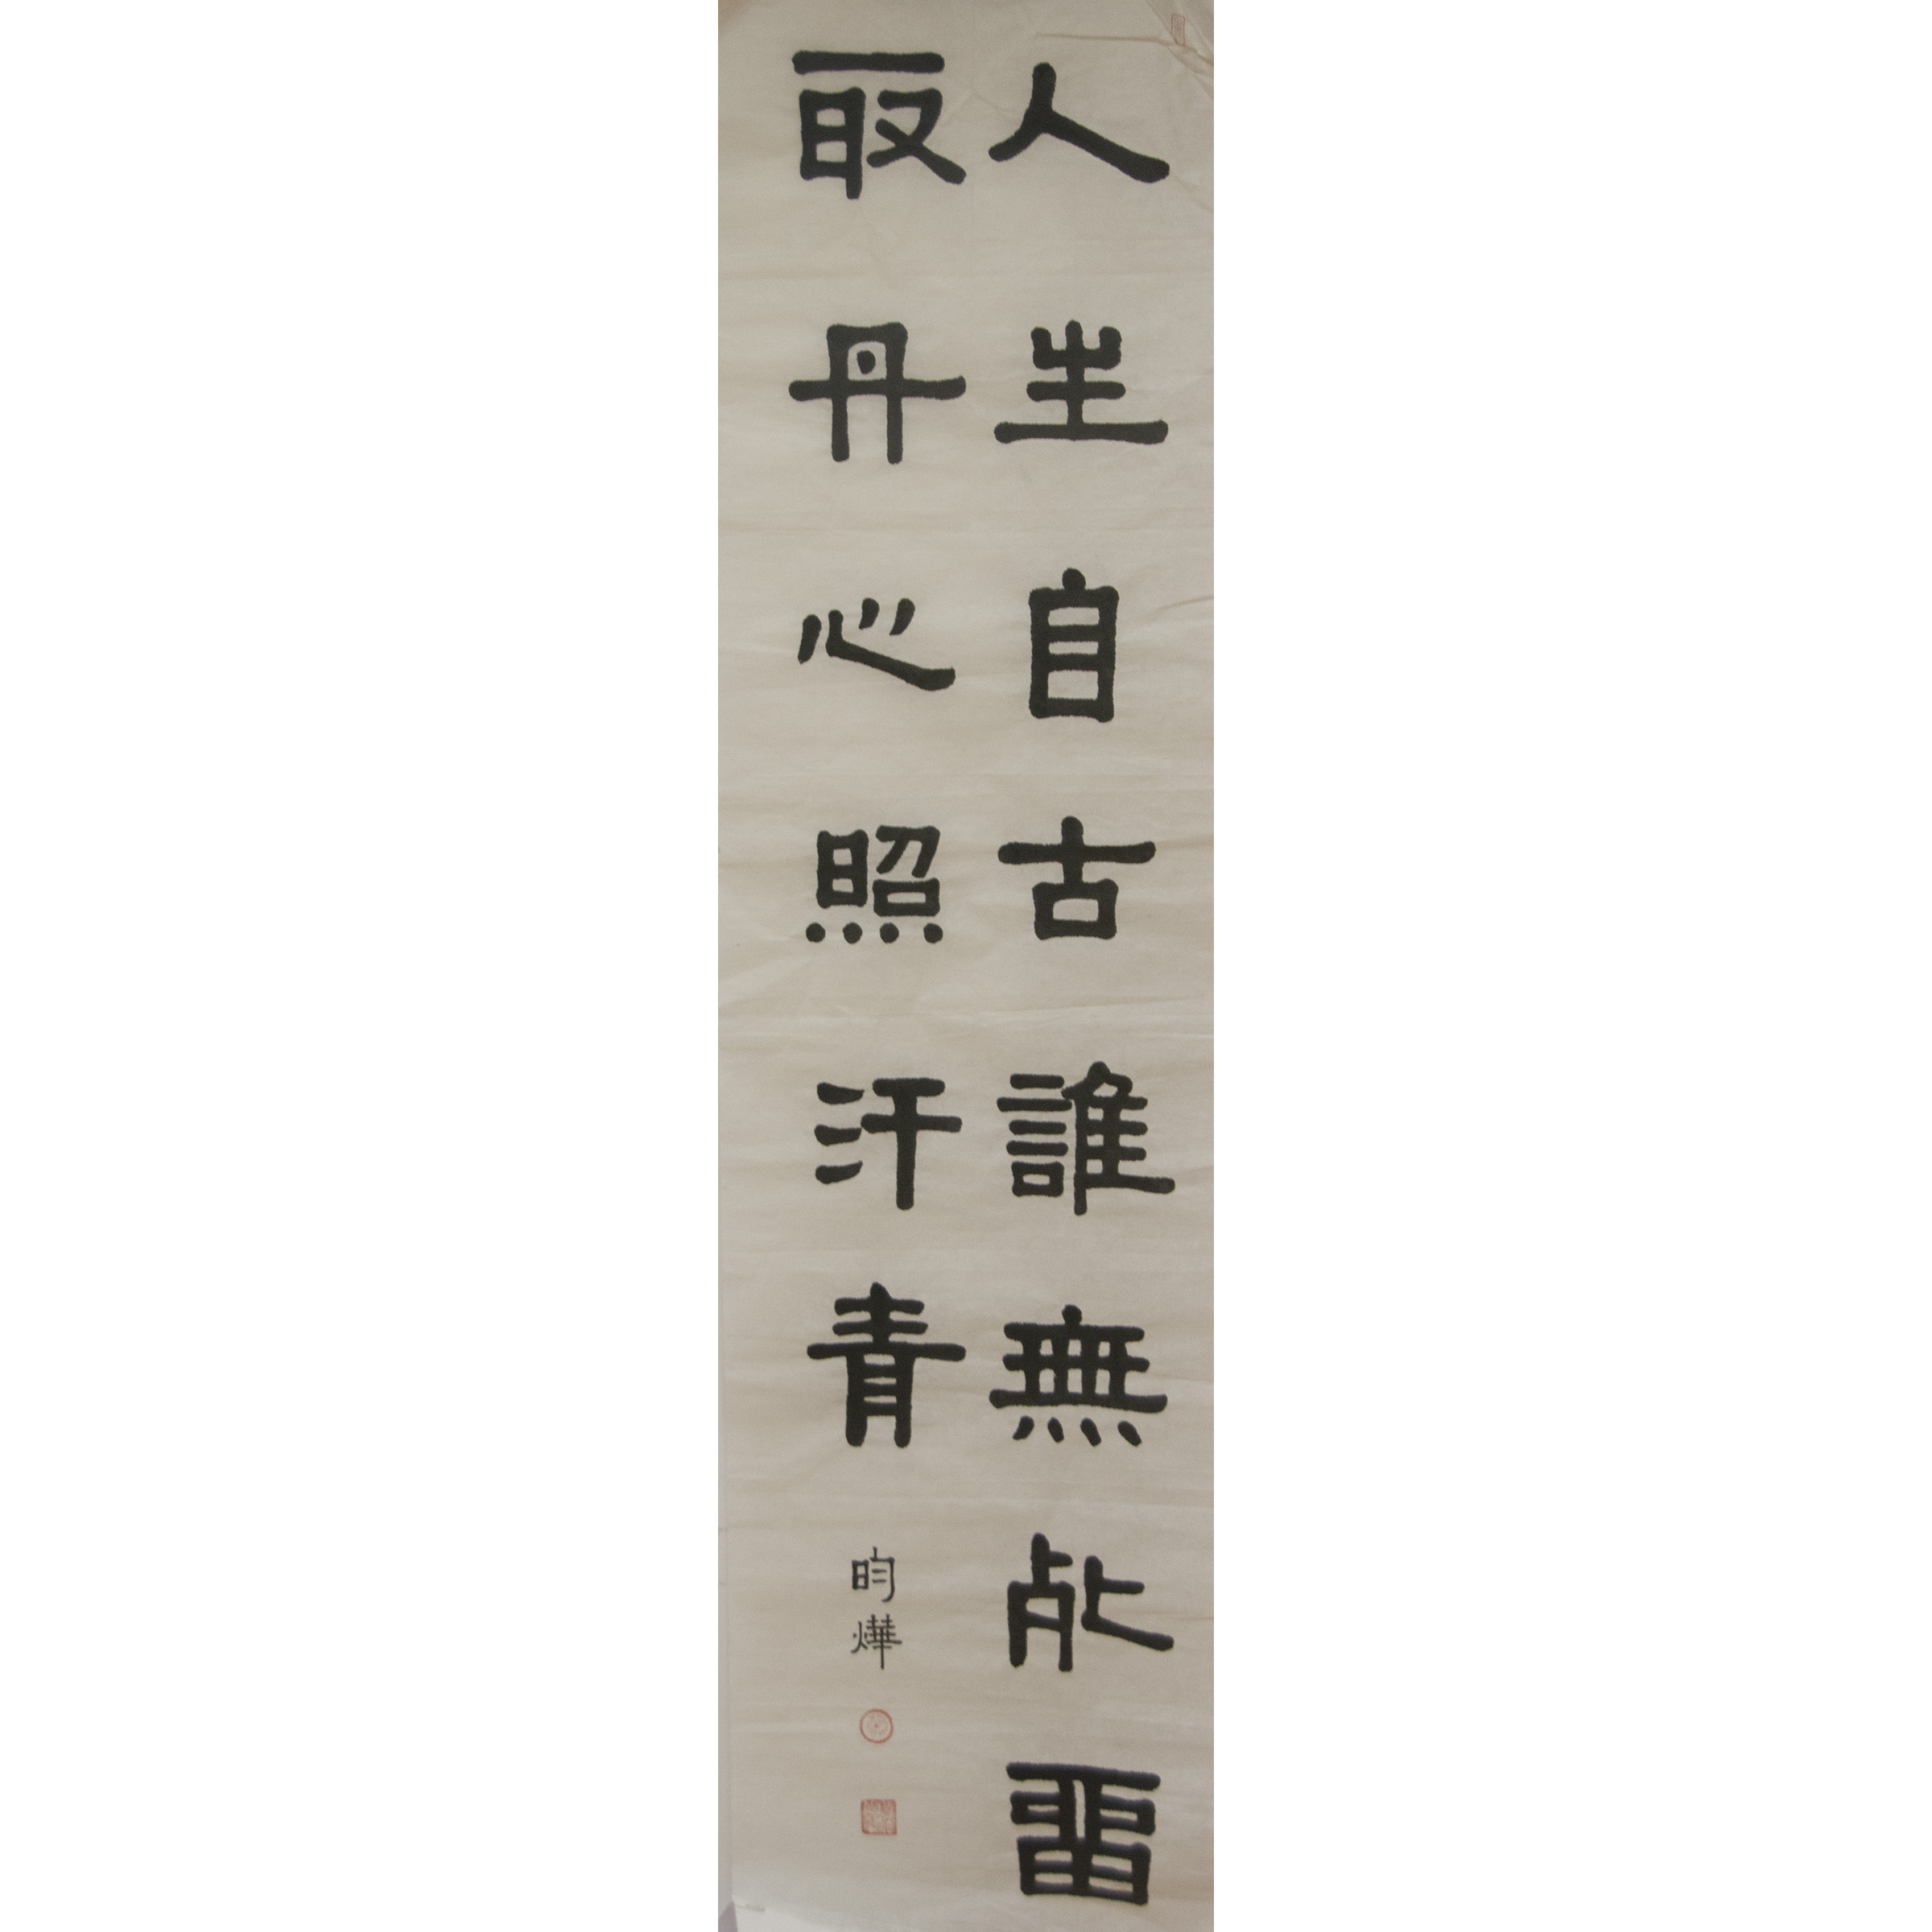 人生自古誰無死畱
取丹心照汗青
昀燁